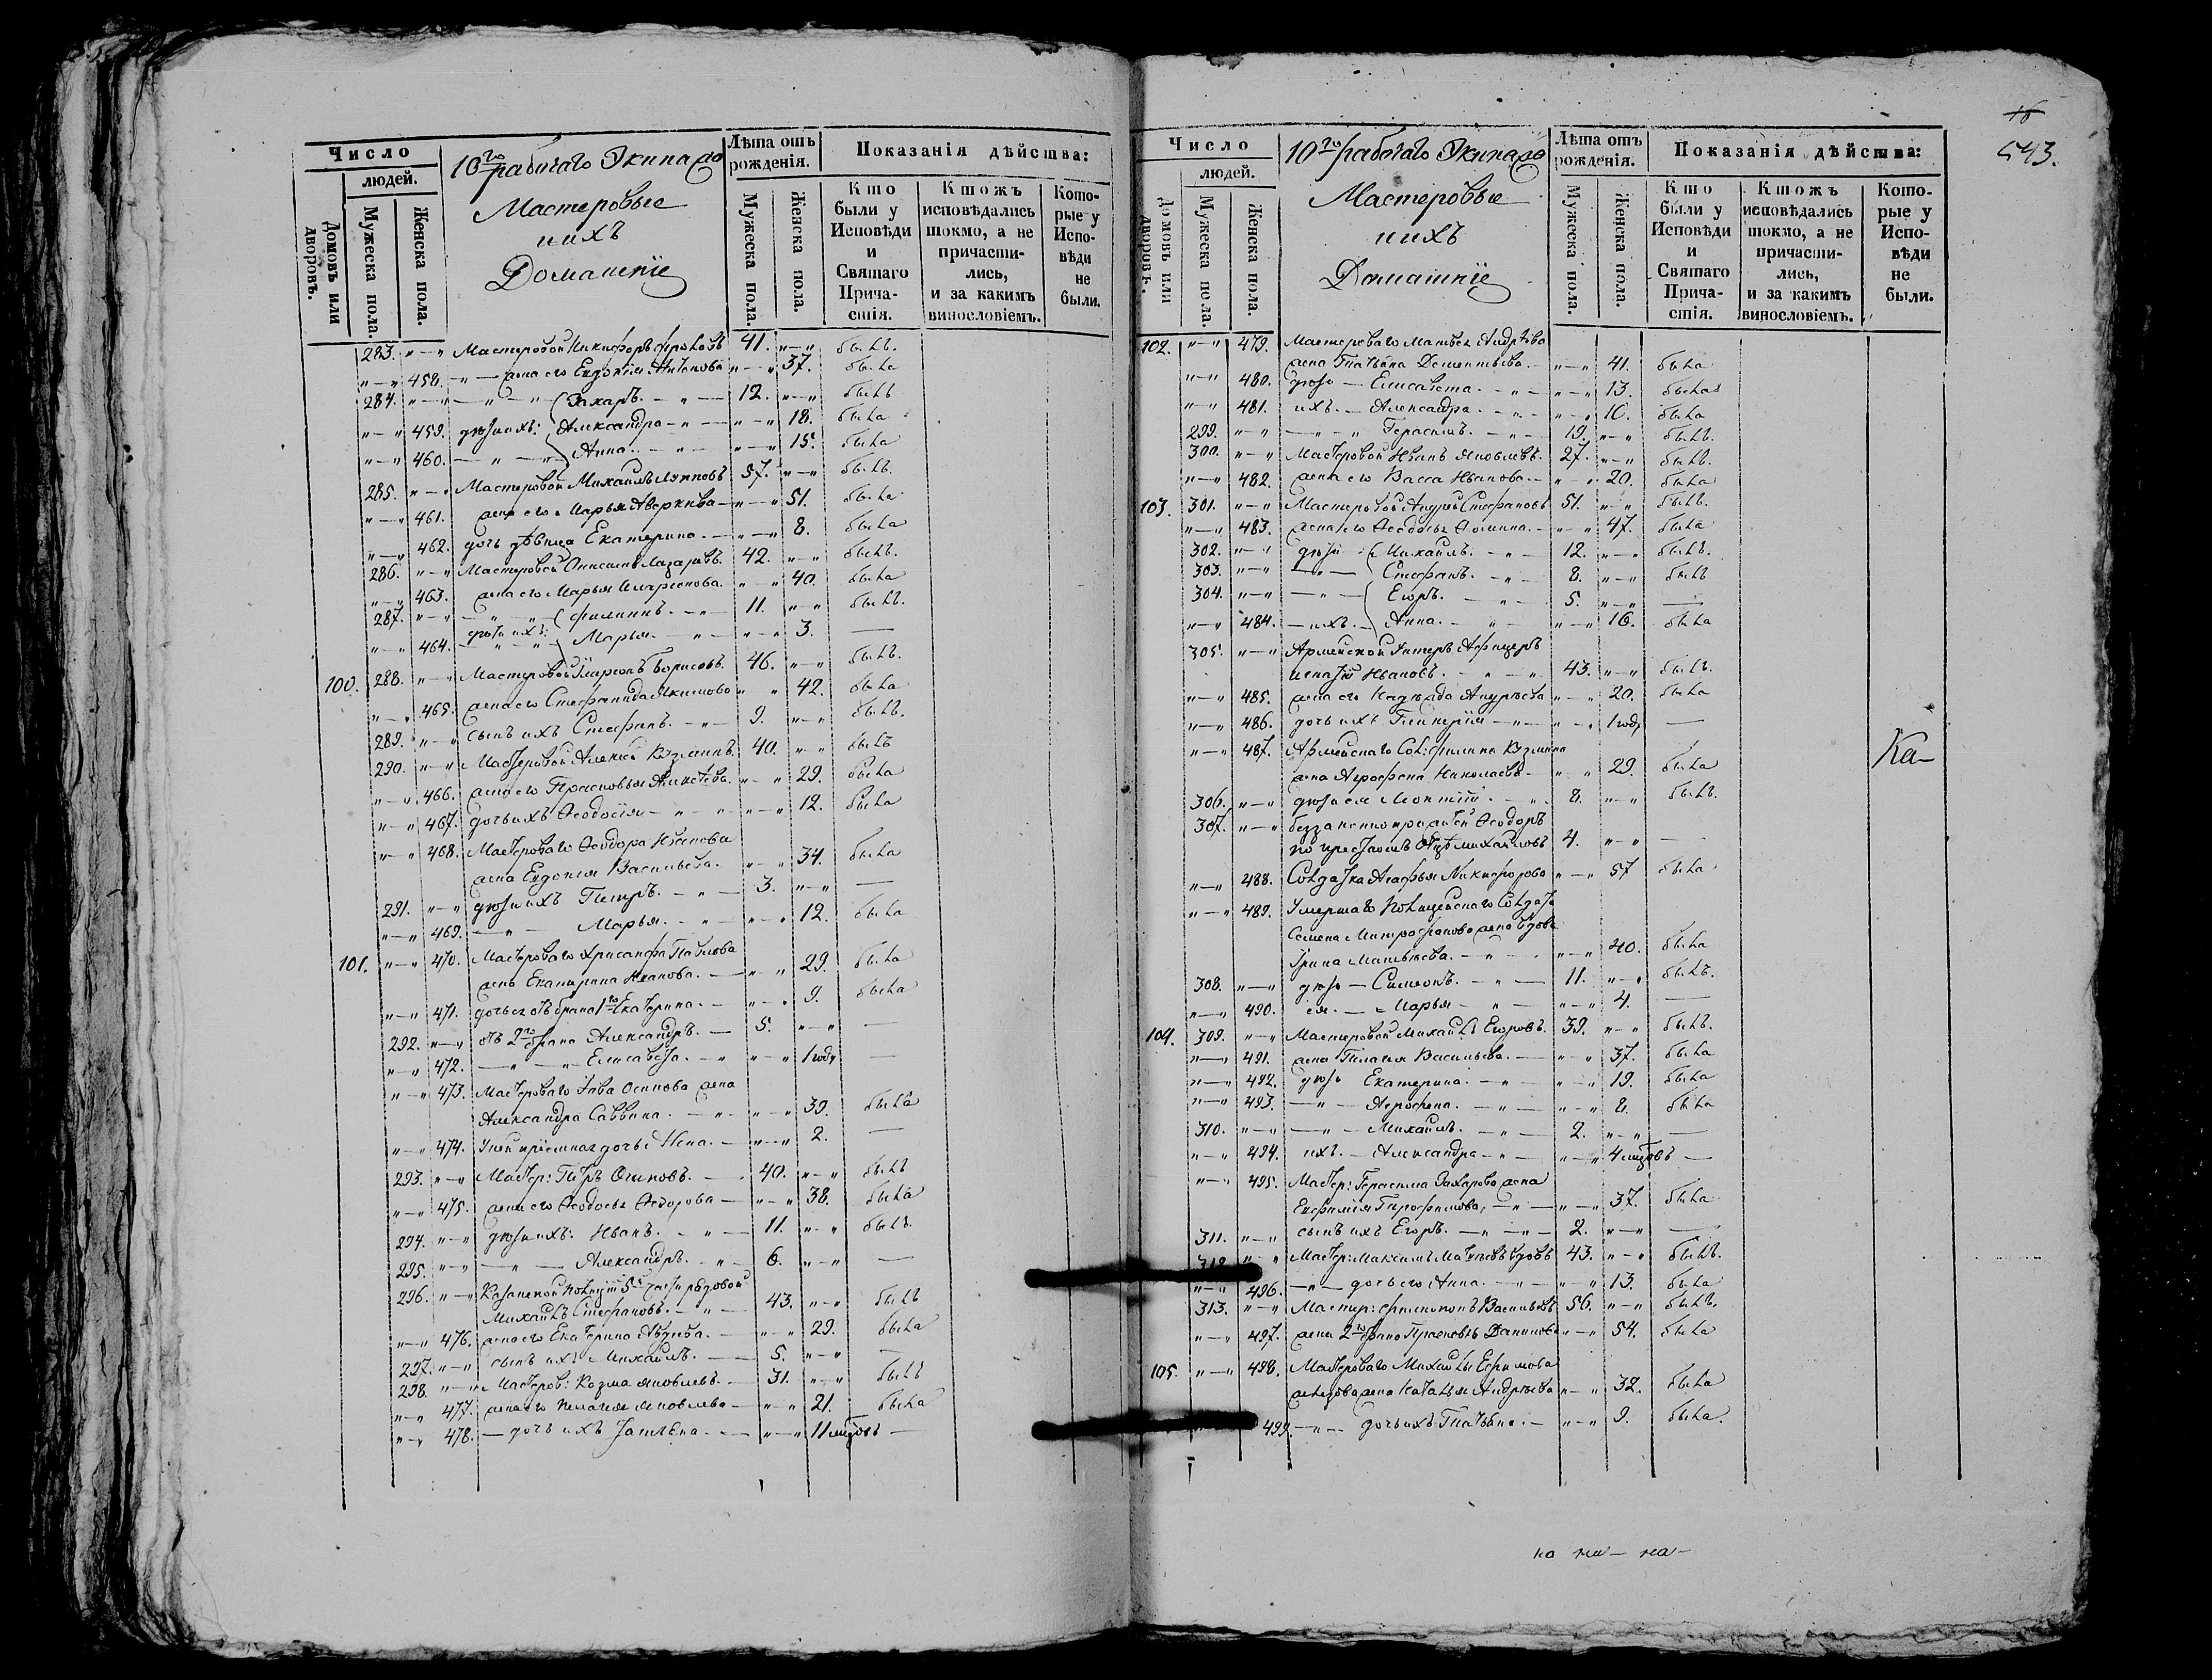 Число
людей.
Домовъ или дворовъ.
Мужеска пола.
Женска пола.
10го рабочаго Экипажа
Мастеровые
и ихъ
Домашніе
Лѣта отъ рожденія.
Мужеска пола.
Женска пола.
Показанія дѣйства:
Кто были у Исповѣди и Святаго Прича- стія.
Ктожъ исповѣдались токмо, а не причасти- лись, и за какимъ винословіемъ.
Кото- рые у Испо- вѣди не были.
283. "—" Мастеровой Никифоръ 41. "—" былъ.
"—" 458. "— жена его Евдокія Антонова "—" 37. была
284. "—" — " — " Захаръ. — " — 12. "—" былъ
"—" 459. дѣти ихъ: Александра — " — "—" 18. была
"—" 460. — " — " Анна. — " — "—" 15. была
285. "—" Мастеровой Михаилъ 57. "—" былъ.
"—" 461. жена его Марья Аверкіева — "—" 51. была
"—" 462. дочь дѣвица Екатерина. — "—" 8. была
286. "—" Мастеровой Онисимъ Лазаревъ. 42. "—" былъ.
"—" 463. жена его Марья Иларіонова. "—" 40. была
287. "—" — " — " Филиппъ. — " — 11. "—" былъ.
"—" 464. дѣти ихъ: Марья. — " — "—" 3. —
100. 288. "—" Мастеровой Иларіонъ Борисовъ. 46. "—" былъ.
"—" 465. жена его Стефанида Якимова "—" 42. была
289. "—" сынъ ихъ Стефанъ. — " — 9. "—" былъ.
290. "—" Мастеровой Алексѣй Кузминъ. 40. "—" былъ
"—" 466. жена его Прасковья Алексѣева. "—" 29. была
"—" 467. дочь ихъ Ѳеодосія — " — "—" 12. была
"—" 468. Мастероваго Ѳеодора Иванова
жена Евдокія Васильева. "—" 34. была
291. "—" дѣти ихъ Петръ. — " — 3. "—" —
"—" 469. — " — Марья. — " — "—" 12. была
101. "—" 470. Мастероваго Хрисанфа Павлова
жена Екатерина Иванова. — "—" 29. была
"—" 471. дочь его отъ брака 1го Екатерина. — "—" 9. была
292. "—" отъ 2го брака Александръ. — 5. "—" —
"—" 472. — " — " Елисавета. — " "—" 1 годъ —
"—" 473. Мастероваго Осипова жена
Александра Саввина. — " — "—" 39. была
"—" 474. У ней пріемная дочь Анна. — "—" 2. —
293. "—" Мастер: Петръ Осиповъ. — 40. "—" былъ
"—" 475. жена его Ѳеодосья Ѳедорова — "—" 38. была
294. "—" дѣти ихъ: Иванъ. — " — 11. "—" былъ.
295. "—" — " — Александръ. — " — 6. "—" —
296. "—" Казанской Полиціи 5й части рядовой
Михаилъ Стефановъ. — " — 43. "—" былъ
"—" 476. жена его Екатерина — "—" 29. была
297. "—" сынъ ихъ Михаилъ. — 5. "—" —
298. "—" Мастеров: Козма Яковлевъ. — 31. "—" былъ
"—" 477. жена его Пелагея Яковлева — "—" 21. была
"—" 478. — дочь ихъ Татьяна. — "—" 11 мѣсцовъ —
16
543.
Число
людей.
Домовъ или дворовъ.
Мужеска пола.
Женска пола.
10го рабочаго Экипажа
Мастеровые
и ихъ
Домашніе
Лѣта отъ рожденія.
Мужеска пола.
Женска пола.
Показанія дѣйства:
Кто были у Исповѣди и Святаго Прича- стія.
Ктожъ исповѣдались токмо, а не причасти- лись, и за какимъ винословіемъ.
Кото- рые у Испо- вѣди не были.
102. "—" 479. Мастероваго Матвѣя Андрѣева
жена Татьяна Дементьева. — "—" 41. была
"—" 480. дѣти — Елисавета. — " — "—" 13. была
"—" 481. ихъ. — Александра. — " — "—" 10. была
299. "—" — " — " Герасимъ. — " — 19. "—" былъ.
300. "—" Мастеровой Иванъ Яковлевъ. 27. "—" былъ.
"—" 482. жена его Васса Иванова. — "—" 20. была
103. 301. "—" Мастеровой Андрей Стефановъ 51. "—" былъ.
"—" 483. жена его Ѳеодосья Ѳомина. — "—" 47. была
302. "—" дѣти Михаилъ. — " — 12. "—" былъ.
303. "—" — " — Стефанъ. — " — 8. "—" былъ
304. "—" — " — Егоръ. — " — 5. "—" —
"—" 484. — ихъ. — Анна. — " — "—" 16. была
305. "—" Армейской Унтеръ Афицеръ
Игнатій Ивановъ. — " — 43. "—" былъ.
"—" 485. жена его Надежда Андреева "—" 20. была
"—" 486. дочь ихъ Гликерія — " — "—" 1 годъ —
"—" 487. Армейскаго Сол: Филипа Кузмина
жена Агрофена Николаева — "—" 29. была
Ка—
306. "—" дѣти ея Леонтій. — " — 8. "—" былъ.
307. "—" Ѳеодоръ
по крестномъ Отцѣ Михайловъ 4. "—" —
"—" 488. Солдатка Агафья Никифорова "—" 57 была
"—" 489. Умершаго Полицейскаго Солдата
Семена Митрофанова жена вдова
Ирина Матвѣева. — " — "—" 40. была
308. "—" дѣти — Симеонъ. — " — 11. "—" былъ.
"—" 490. ея. — Марья — " — "—" 4. —
104. 309. "—" Мастеровой Михаилъ Егоровъ. 39. "—" былъ.
"—" 491. жена Пелагея Васильева. — "—" 37. была
"—" 492. дѣти Екатерина. — " — "—" 19. была
"—" 493. — " — Агрофена. — " — "—" 8. была
310. "—" — " — Михаилъ. — " — 2. "—" —
"—" 494. ихъ. — Александра — " — "—" 4 мѣсцовъ —
"—" 495. Мастер: Герасима Захарова жена
Евфимія Парфенова, — " — "—" 37. была
311. "—" сынъ ихъ Егоръ. — " — 2. "—" —
312. "—" Мастер: Максимъ Матвѣевъ вдовъ 43. "—" былъ.
"—" 496. — " — дочь его Анна. — " — "—" 13. была
313. "—" Мастер: Филимонъ Васильевъ 56. "—" былъ.
"—" 497. жена 2го брака Прасковья Данилова "—" 54. была
105. "—" 498. Мастероваго Михайлы Ефимова
жена Наталья Андрѣева "—" 32. была
499. — " — дочь ихъ Татьяна. — "—" 9. была.